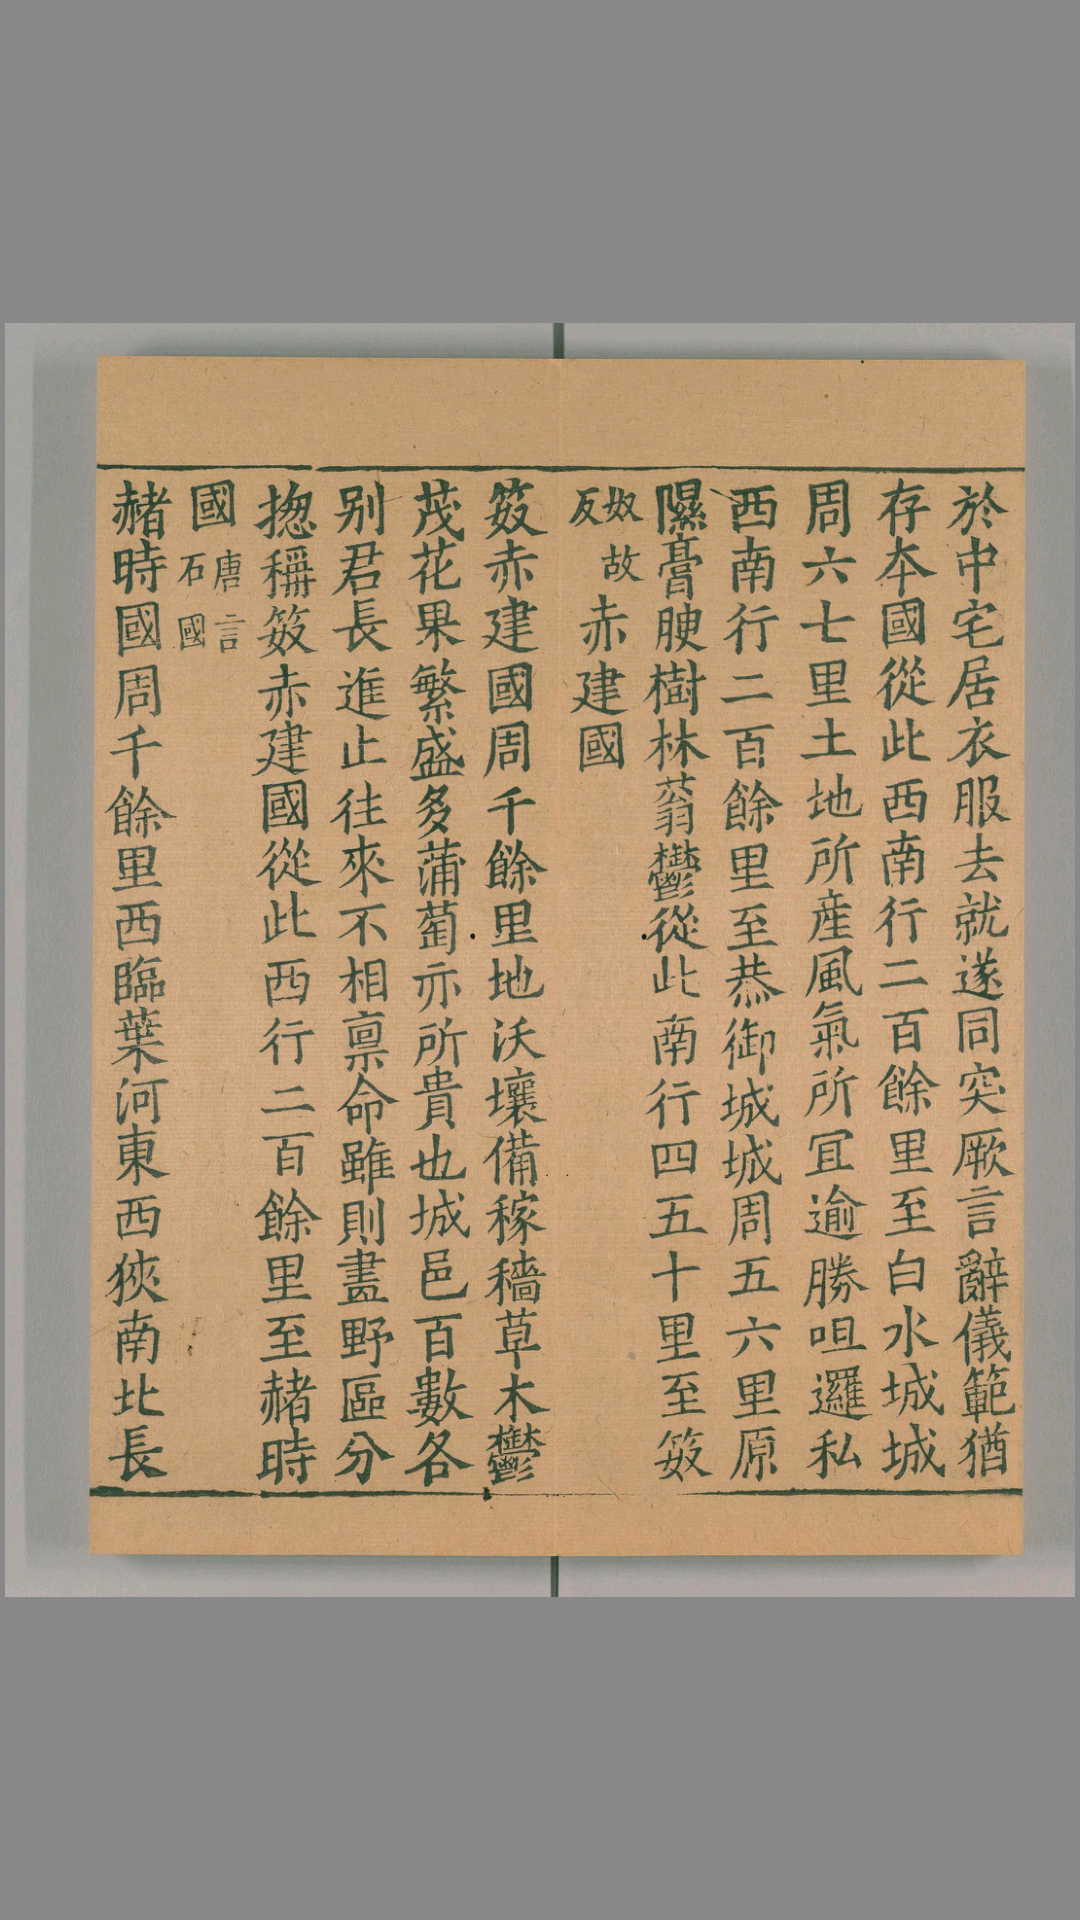 於中宅居衣服去就遂同突厥言辭儀範猶
存本國從此西南行二百餘里至白水城城
周六七里土地所産風氣所冝逾勝呾邏私
西南行二百餘里至恭御城城周五六里原
隰膏腴樹林蓊鬱從此南行四五十里至笯
奴故反赤建國
笯赤建國周千餘里地沃壤備稼穡草木鬱
茂花果繁盛多蒲萄亦所貴也城邑百數各
别君長進止往來不相禀命雖則畫野區分
揔稱笯赤建國從此西行二百餘里至赭時
國唐言石國
赭時國周千餘里西臨葉河東西狹南北長